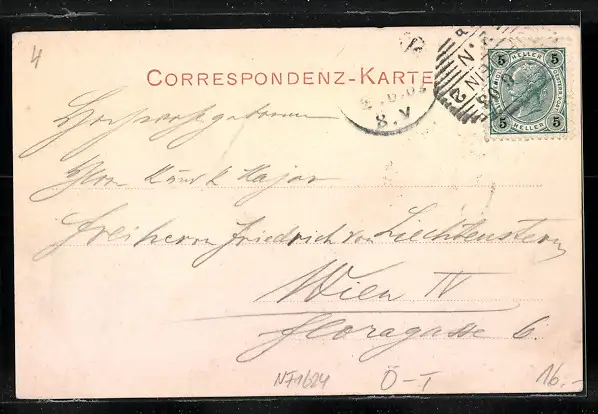 4
CORRESPONDENZ-KARTE
5 HELLER 5
5 HELLER 5
8.V
Hochwohlgeboren
Herrn K. und k. Major
Freiherrn Friedrich von Liechtenstern
Wien IV
Floragasse 6.
NF1624
Ö-I
16.-